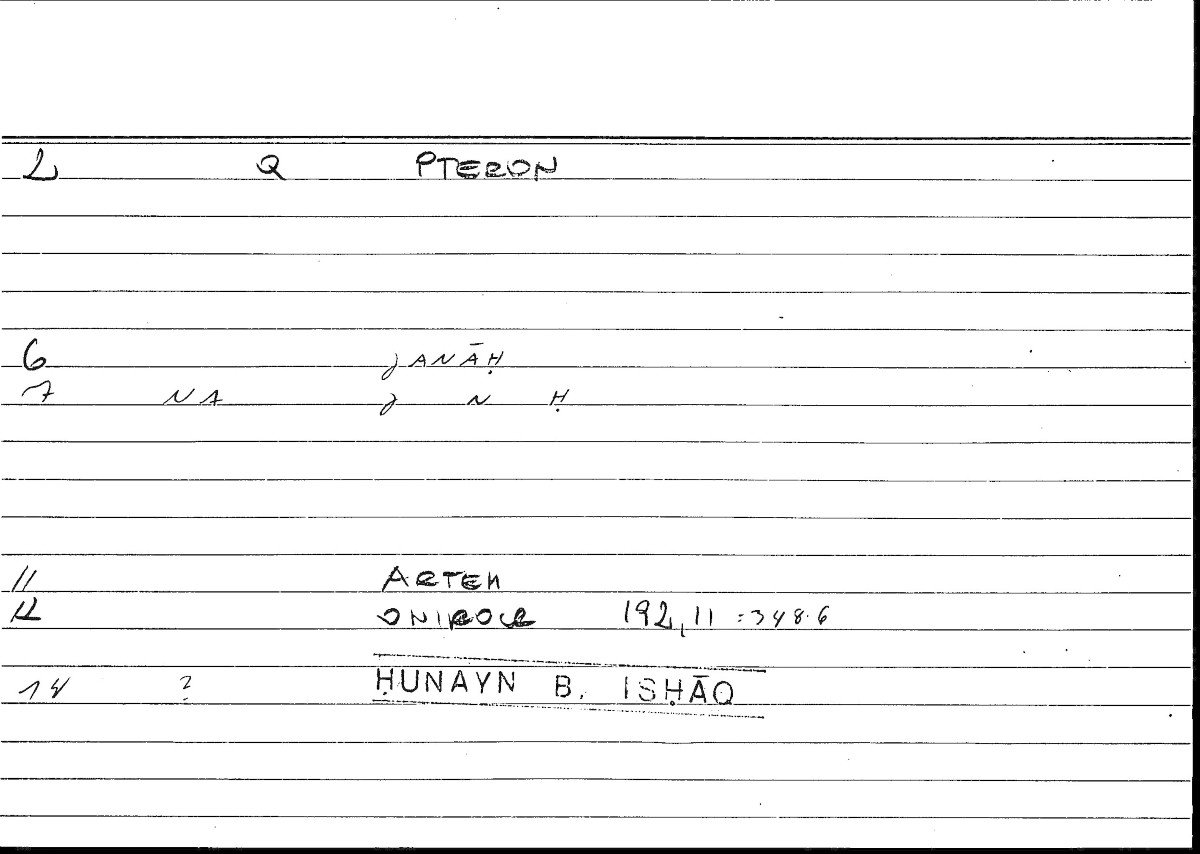 2 Q PTERON
6 JANĀḤ
7 NA J N Ḥ
11 ARTEM
12 ONIROCR 192,11 = 348.6
14 ? ḤUNAYN B. ISḤĀQ